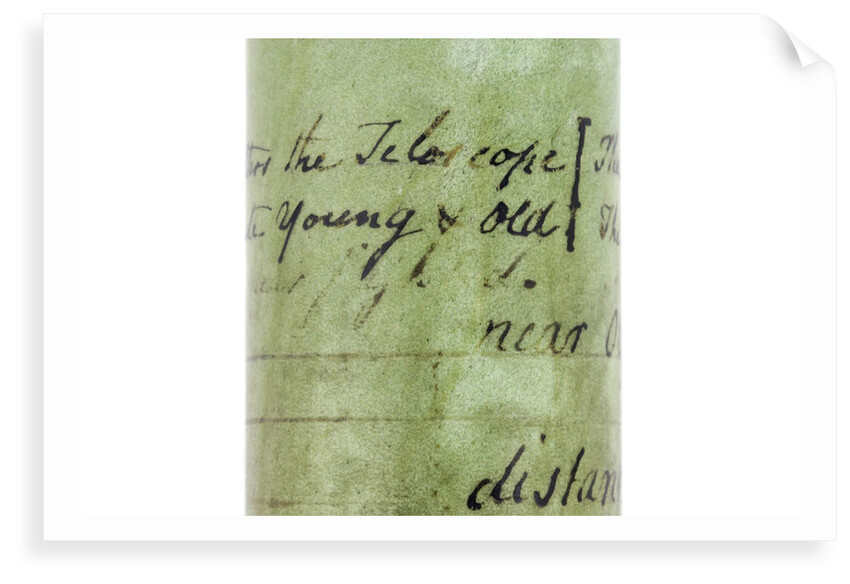 the Telescope [ The
Young & Old [ The
near
distan